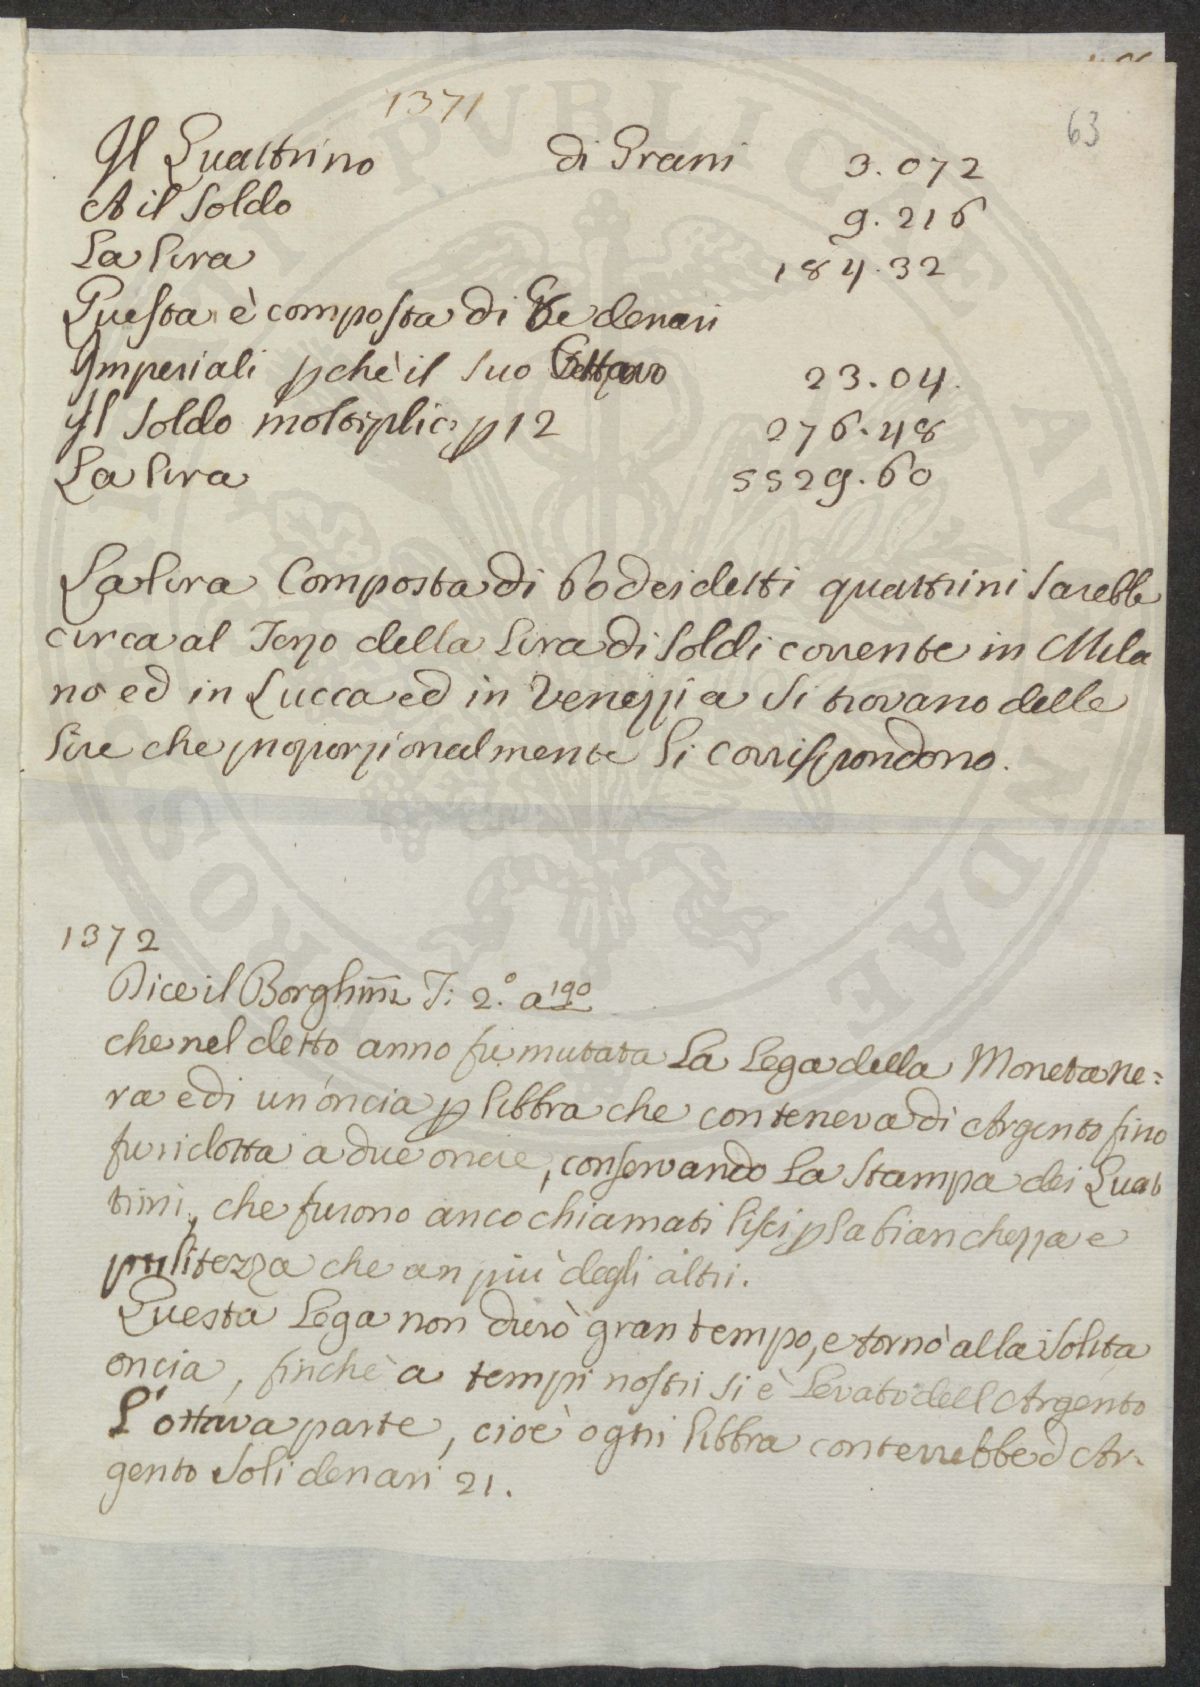 1371
63
Il Quattrino di Grani 3.072
A il Soldo 9.216
La lira 184.32
Questa è composta di denari
Imperiali pchè il suo Ottavo 23.04.
Il Soldo moltiplic: p 12 276.48
La lira 5529.60
La lira Composta di 60 dei detti quattrini Sarebbe
circa al Terzo della lira di Soldi corrente in Mila
no ed in Lucca ed in Venezzia Si trovano delle
lire che proporzionalmente li corrispondono.
1372
Dice il Borghini T: 2.º a 190
che nel detto anno fu mutata La Lega della Moneta ne=
ra e di un'oncia p libbra che conteneva di Argento fino
fu ridotta a due oncie, conservando La Stampa dei Quat
trini, che furono anco chiamati lisci p la bianchezza e
pulitezza che an più degli altri.
Questa Lega non durò gran tempo, e tornò alla solita
oncia, finchè a tempi nostri si è Levato dell Argento
L'ottava parte, cioè ogni libbra conterrebbe d Ar-
gento Soli denari 21.